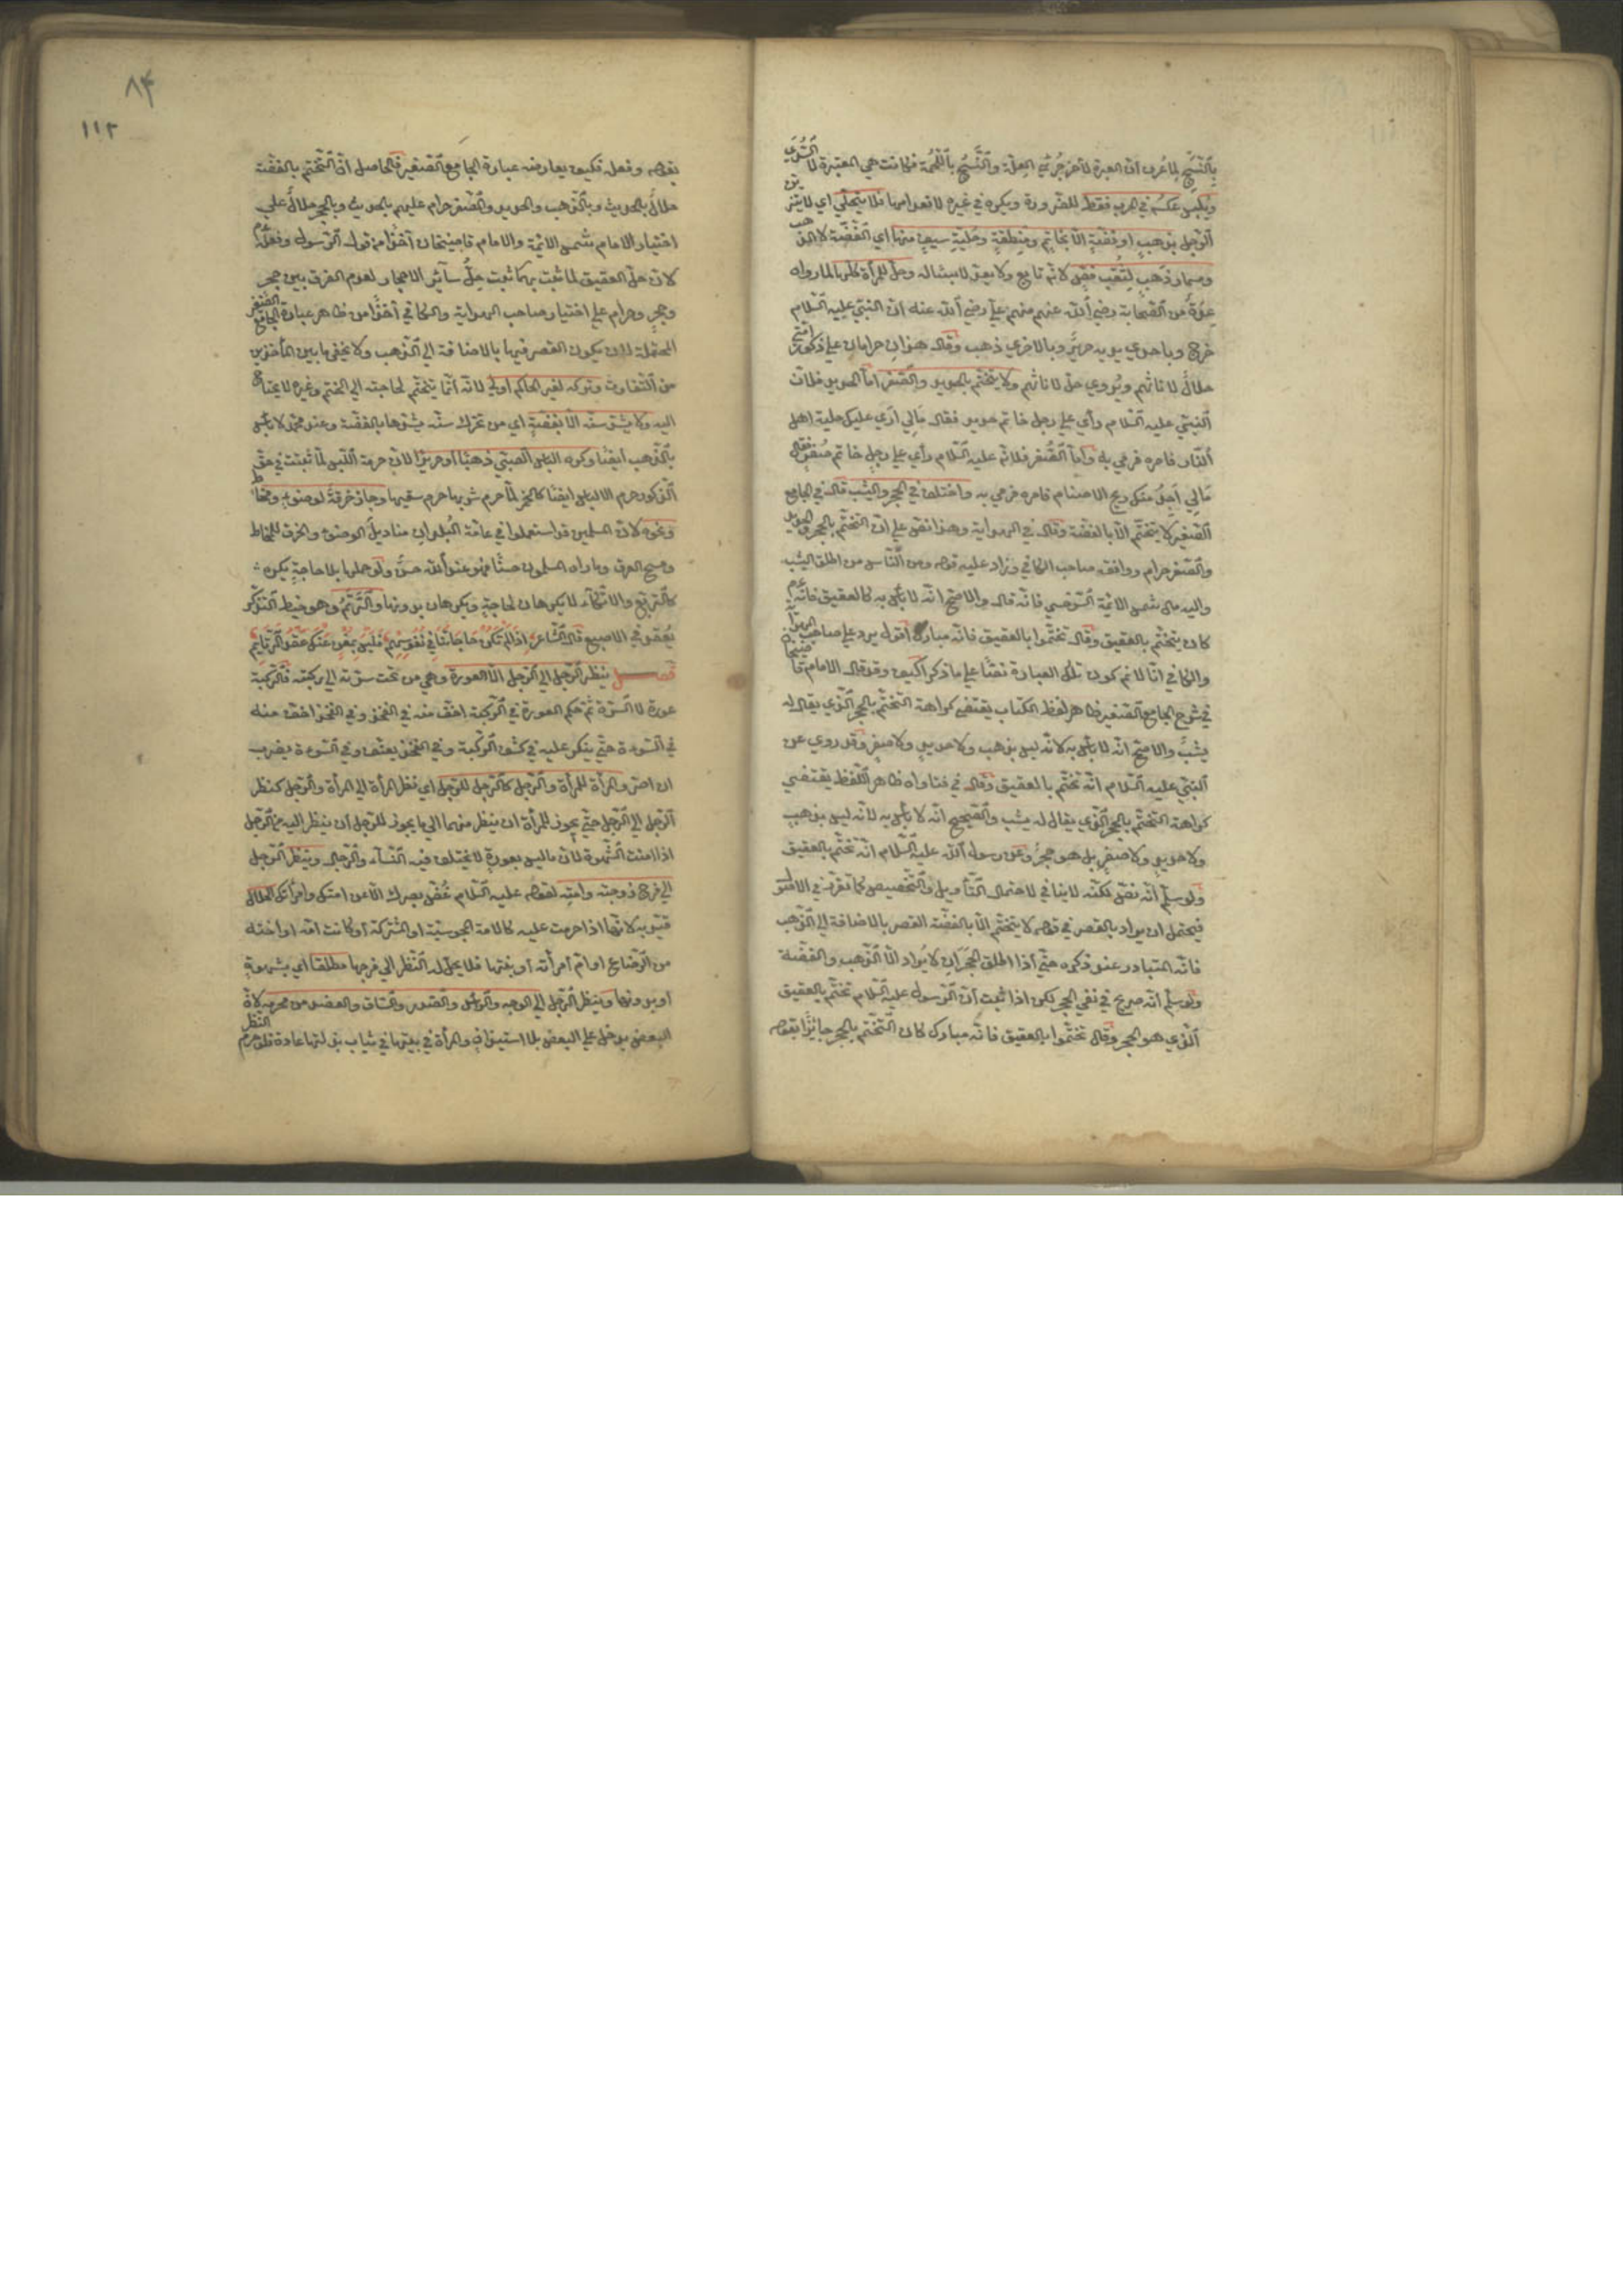 بالنسج لما عرف ان العبرة لآخر جزئي العلة والنسج باللحمة فكانت هي المعتبرة لا السدى
ويلبس عكسه في الحرب فقط للضرورة ويكره في غيره لانعدامها فلا يتحلى اي لا يتزين
الرجل بذهب او فضة الا بخاتم ومنطقة وحلية سيف منها اي الفضة لا الذهب
ومسمار ذهب لثقب فص لانه تابع ولا يعد لابسا له وحل للمرأة كلها لما رواه
عدة من الصحابة رضي الله عنهم منهم علي رضي الله عنه ان النبي عليه السلام
خرج وباحدى يديه حرير وبالاخرى ذهب وقال هذان حرامان على ذكور امتي
حلال لاناثهم ويروى حل لاناثهم ولا يتختم بالحديد والصفر اما الحديد فلان
النبي عليه السلام رأى على رجل خاتم حديد فقال مالي ارى عليك حلية اهل
النار فامره فرمى به واما الصفر فلانه عليه السلام رأى على رجل خاتم صفر فقال
مالي اجد منك ريح الاصنام فامره فرمى به واختلف في الحجر واليشب قال في الجامع
الصغير لا يتختم الا بالفضة وقال في الهداية وهذا نص على ان التختم بالحجر والحديد
والصفر حرام ووافقه صاحب الكافي وزاد عليه قوله ومن الناس من اطلق اليشب
واليه مال شمس الائمة السرخسي فانه قال والاصح انه لا بأس به كالعقيق فانه عم
كان يتختم بالعقيق وقال تختموا بالعقيق فانه مبارك اقول يرد على صاحب الهداية
والكافي انا لا نم كون تلك العبارة نصا على ما ذكرا كيف وقد قال الامام قاضيخان
في شرح الجامع الصغير ظاهر لفظ الكتاب يقتضي كراهة التختم بالحجر الذي يقال له
يشب والاصح انه لا بأس به لانه ليس بذهب ولا حديد ولا صفر وقد روي عن
النبي عليه السلام انه تختم بالعقيق وقال في فتاواه ظاهر اللفظ يقتضي
كراهة التختم بالحجر الذي يقال له يشب والصحيح انه لا بأس به لانه ليس بذهب
ولا حديد ولا صفر بل هو حجر وعن رسول الله عليه السلام انه تختم بالعقيق
ولو سلم انه نص لكنه لا ينافي لاحتمال التأويل والتخصيص كما تقرر في الاصول
فيحتمل ان يراد بالقصر في قوله لا يتختم الا بالفضة القصر بالاضافة الى الذهب
فانه المتبادر عند ذكره حتى اذا اطلق الحجران لا يراد الا الذهب والفضة
ولو سلم انه صريح في نفي الحجر لكن اذا ثبت ان الرسول عليه السلام تختم بالعقيق
الذي هو الحجر وقال تختموا بالعقيق فانه مبارك كان التختم بالحجر جائزا بقوله
٨۴
١١٢
بقوله وفعله فكيف يعارضه عبارة الجامع الصغير فالحاصل ان التختم بالفضة
حلال بالحديث وبالذهب والحديد والصفر حرام عليهم بالحديث وبالحجر حلال على
اختيار الامام شمس الائمة والامام قاضيخان آخذا من قول الرسول وفعله عم
لان حل العقيق لما ثبت بهما ثبت حل سائر الاحجار لعدم الفرق بين حجر
وحجر وحرام على اختيار صاحب الهداية والكافي آخذا من ظاهر عبارة الجامع الصغير
المحتملة لان يكون القصر فيها بالاضافة الى الذهب ولا يخفى ما بين المأخذين
من التفاوت وتركه لغير الحاكم اولى لانه انما يتختم لحاجته الى الختم وغيره لا يحتاج
اليه ولا يشد سنه الا بفضة اي من تحرك سنه يشدها بالفضة وعند محمد لا بأس
بالذهب ايضا وكره الباس الصبي ذهبا او حريرا لان حرمة اللبس لما ثبتت في حق
الذكور حرم الالباس ايضا كالخمر لما حرم شربها حرم سقيها وجاز خرقة لوضوء ومخاط
ونحوه لان المسلمين قد استعملوا في عامة البلدان مناديل الوضوء والخرق للمخاط
ومسح العرق وما رآه المسلمون حسنا فهو عند الله حسن ولو حملها بلا حاجة يكره
كالتربع والاتكاء لا يكرهان لحاجة ويكرهان بدونها والرتم وهو خيط التذكر
يعقد في الاصبع قال الشاعر اذا لم تكن حاجاتنا في نفوسهم فليس بمغن عنك عقد الرتايم
فصل ينظر الرجل الى الرجل الا العورة وهي من تحت سرته الى ركبته فالركبة
عورة لا السرة ثم حكم العورة في الركبة اخف منه في الفخذ وفي الفخذ اخف منه
في السوءة حتى ينكر عليه في كشف الركبة وفي الفخذ يعنف وفي السوءة يضرب
ان اصر والمرأة للمرأة والرجل كالرجل للرجل اي نظر المرأة الى المرأة والرجل كنظر
الرجل الى الرجل حتى يجوز للمرأة ان ينظر منهما الى ما يجوز للرجل ان ينظر اليه من الرجل
اذا امنت الشهوة لان ما ليس بعورة لا يختلف فيه النساء والرجال وينظر الرجل
الى فرج زوجته وامته لقوله عليه السلام غض بصرك الا عن امتك وامرأتك الحلال
قيد به لانها اذا حرمت عليه كالامة المجوسية او المشركة او كانت امه او اخته
من الرضاع او ام امرأته او بنتها فلا يحل له النظر الى فرجها مطلقا اي بشهوة
او بدونها وينظر الرجل الى الوجه والرأس والصدر والساق والعضد من محرمه لان
البعض يدخل على البعض بلا استيذان والمرأة في بيتها في ثياب بذلتها عادة فلو حرم النظر